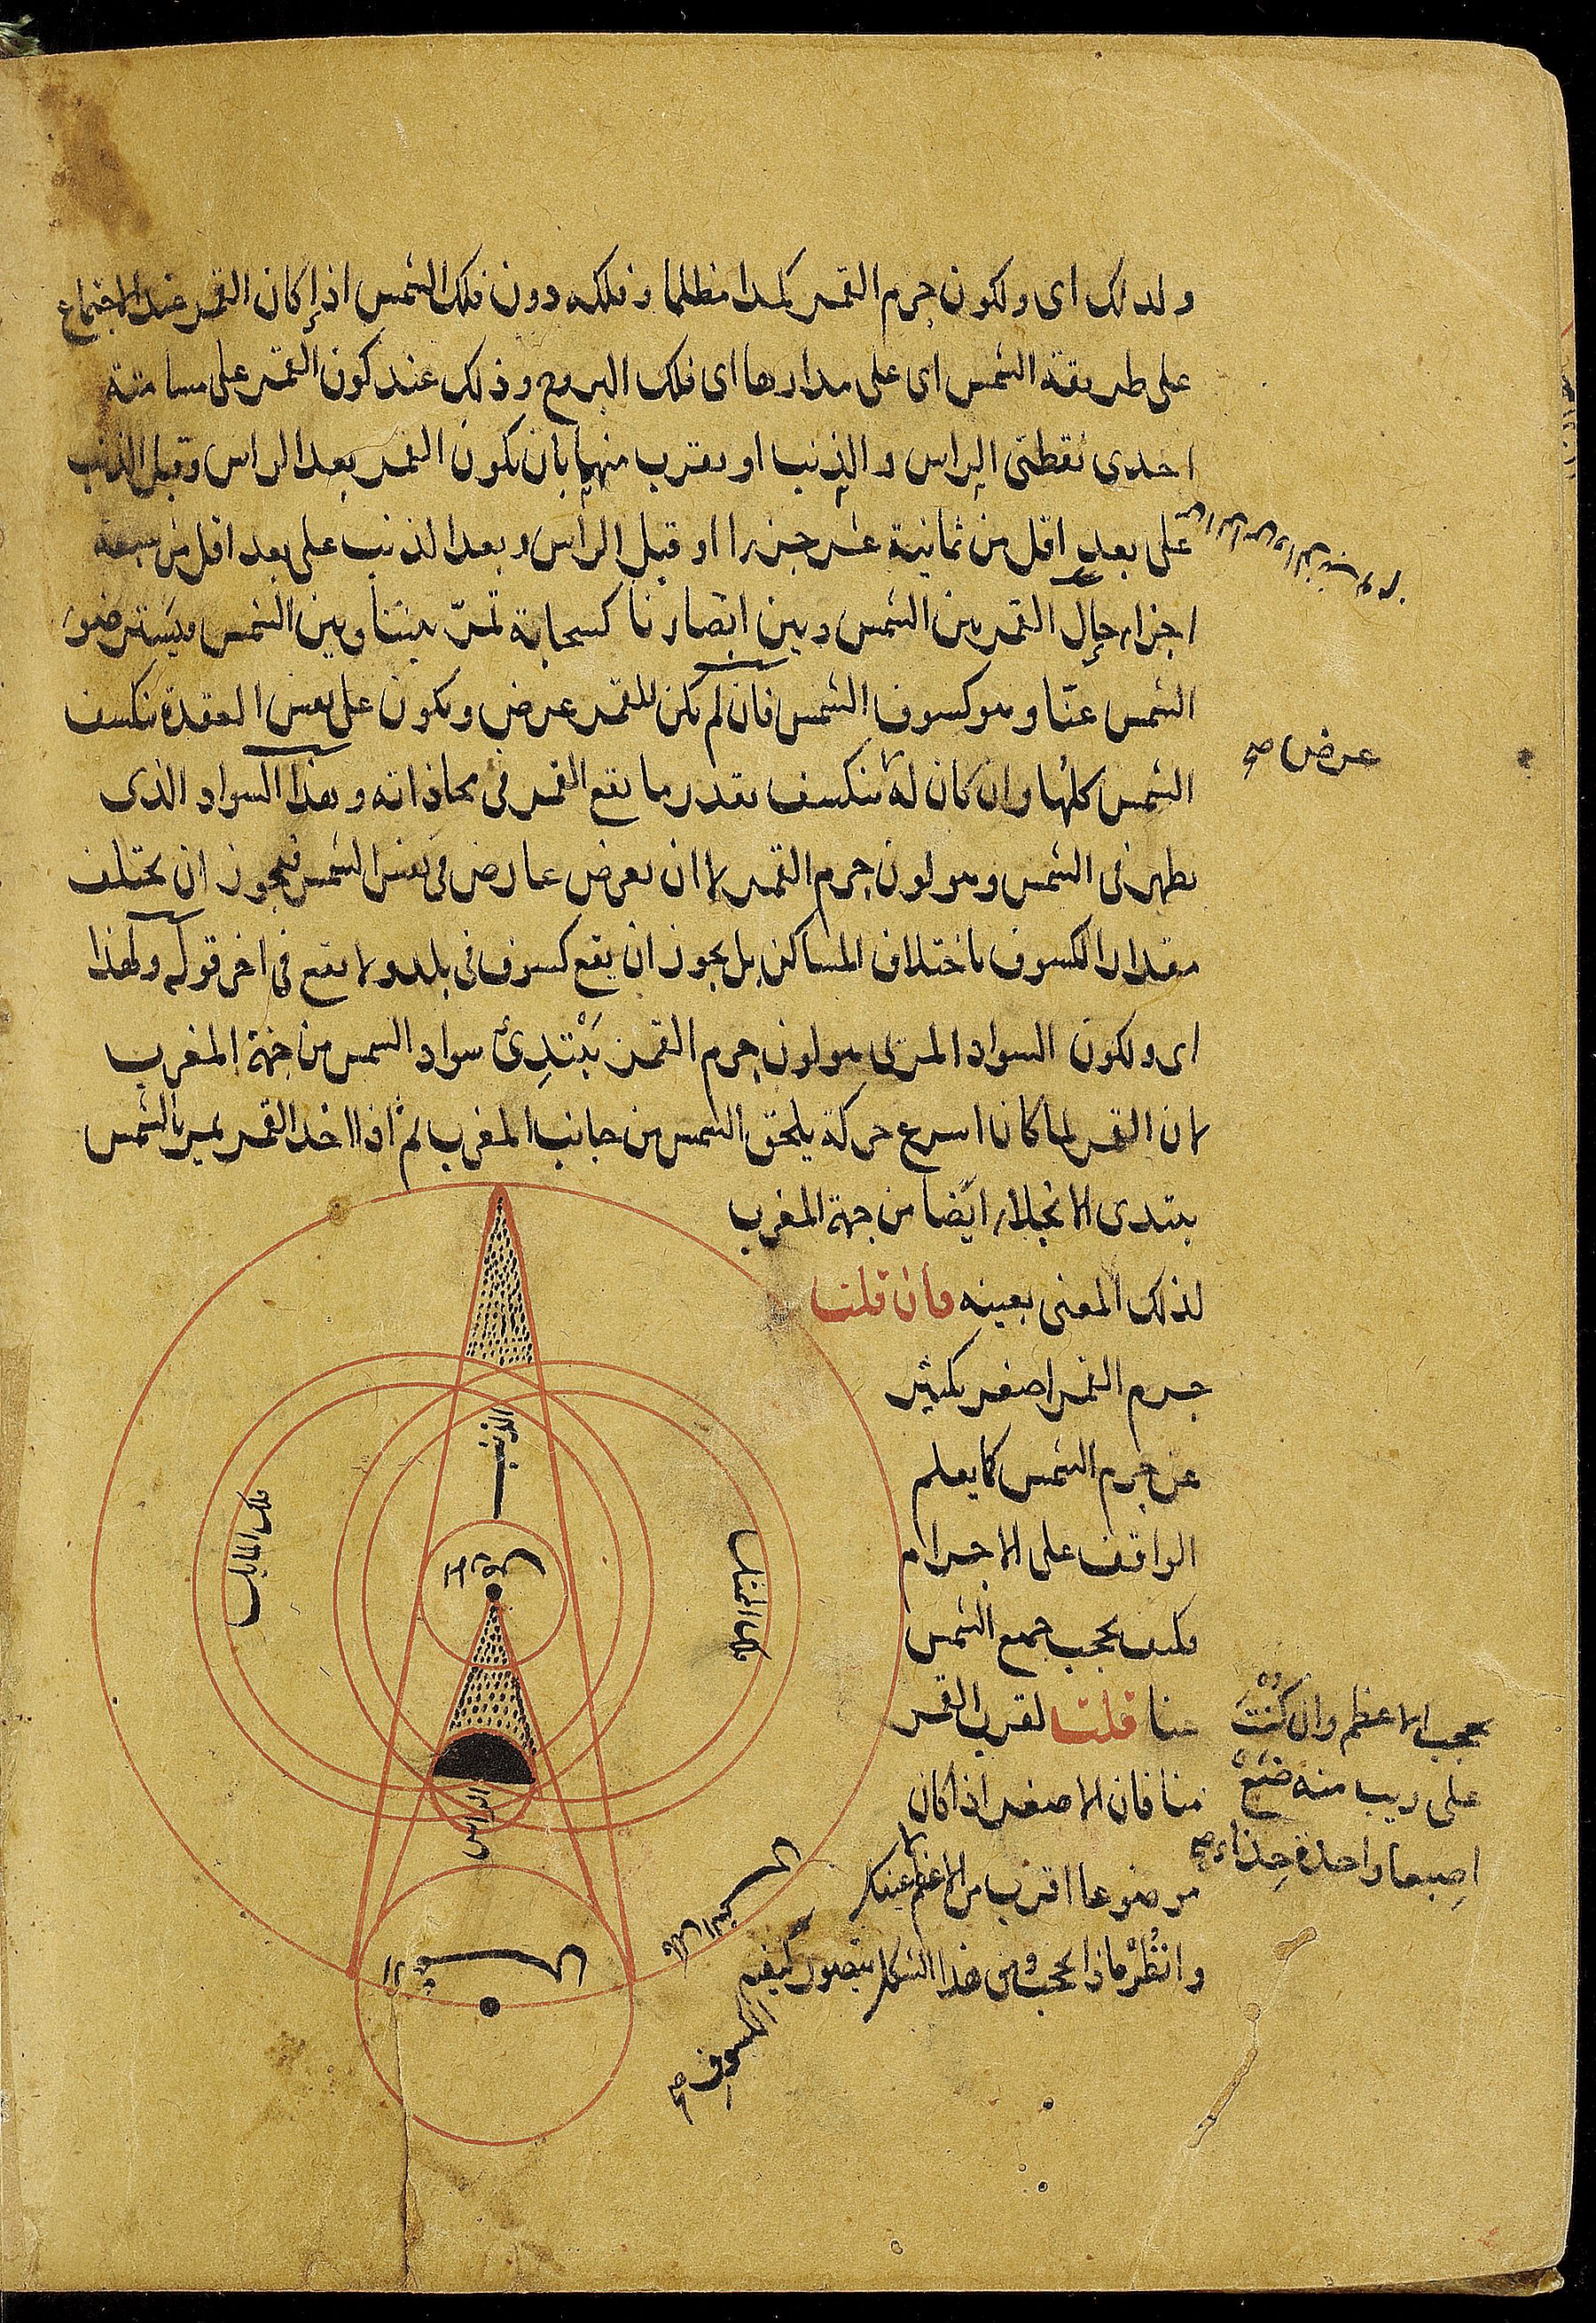 ولذلك اى ولكون جرم القمر كمدا مظلما وفلكه دون فلك الشمس اذا كان القمر عند الاجتماع
على طريقة الشمس اى على مدارها اى فلك البروج وذلك عند كون القمر على مسامتة
احدى نقطتى الراس والذنب او بقرب منهما بان يكون القمر بعد الراس وقبل الذنب
على بعد اقل من ثمانية عشر جزءا او قبل الراس وبعد الذنب على بعد اقل من سبعة
اجزاء حال القمر بين الشمس وبين ابصارنا كسحابة تمرّ بيننا وبين الشمس فيستر ضوء
الشمس عنّا وهو كسوف الشمس فان لم يكن للقمر عرض ويكون على نفس العقدة ينكسف
عرض صح
الشمس كلّها وان كان له ينكسف بقدر ما يقع القمر فى محاذاته وهذا السواد الذى
يظهر فى الشمس وهو لون جرم القمر لا ان يعرض عارض فى نفس الشمس فيجوز ان يختلف
مقدار الكسوف باختلاف المساكن بل يجوز ان يقع كسوف فى بلد ولا يقع فى اخر قوله ولهذا
اى ولكون السواد المرئى هو لون جرم القمر يَبْتدِئ سواد الشمس من جهة المغرب
لان القمر لما كان اسرع حركة يلحق الشمس من جانب المغرب ثم اذا اخذ القمر يمر بالشمس
يبتدى الانجلاء ايضا من جهة المغرب
لذلك المعنى بعينه فان قلت
جرم القمر اصغر بكثير
من جرم الشمس كما يعلم
الواقف على الاجرام
فكيف يحجب جميع الشمس
عنا قلت لقرب القمر
منا فان الاصغر اذا كان
موضوعا اقرب من الاعظم عندك
يحجب الاعظم وان كُنْتَ
على ريب منه ضَعْ
اصبعا واحدة حِذاء صح
وانْظُرْ ماذا يحجب ومن هذا الشكل يتصور كيفية
الكسوف صح
الذنب
فلك المايل
الارض
فلك الممثل
الراس
الشمس